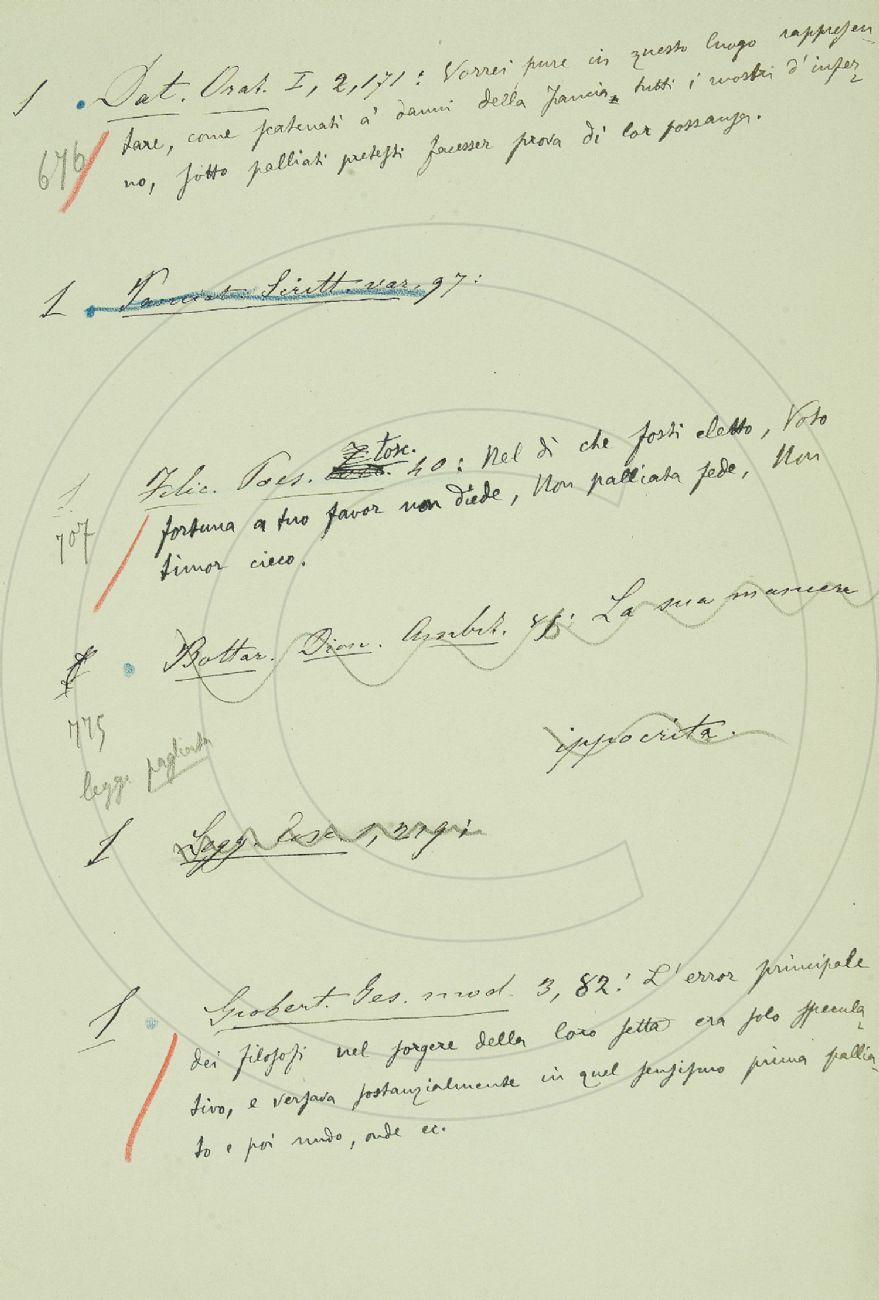 1 Dat. Orat. I, 2, 171: Vorrei pure in questo luogo rappresen-
tare, come scatenati a' danni della Francia, tutti i mostri d'infer-
676
no, sotto palliati pretesti facesser prova di lor possanza.
1 Panciat. Scritt. var. 97:
1 Filic. Poes. tosc. 40: Nel dì che fosti eletto, Voto
707
fortuna a tuo favor non diede, Non palliata fede, Non
timor cieco.
Bottar. Dion. 
La sua maniera
775
ippocrita.
legge pagliata
1 1, 219:
1 Giobert. Ges. mod. 3, 82: L'error principale
dei filosofi nel sorgere della loro setta era solo specula-
tivo, e versava sostanzialmente in quel sensismo prima pallia-
to e poi nudo, onde ec.